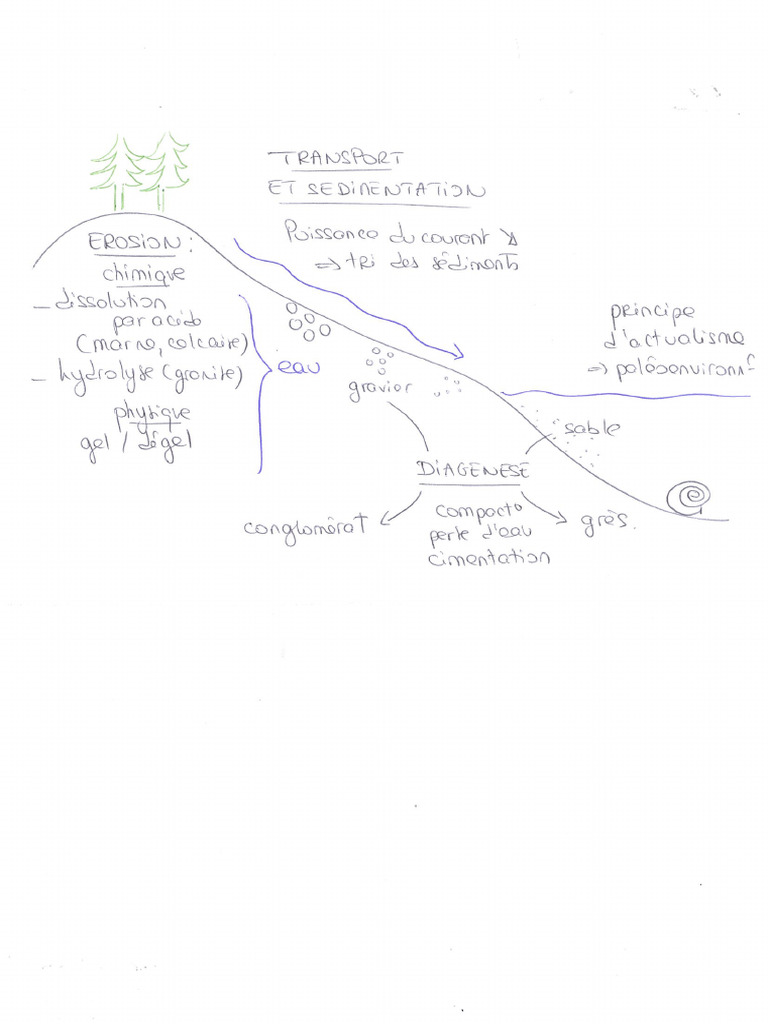 TRANSPORT
ET SEDIMENTATION
Puissance du courant ↘
⇒ tri des sédiments
EROSION :
chimique
- dissolution
par acide
(marne, calcaire)
- hydrolyse (granite)
physique
gel / dégel
eau
gravier
principe
d'actualisme
⇒ paléoenvironnt
sable
DIAGENESE
conglomérat
compact°
perte d'eau
cimentation
grès.